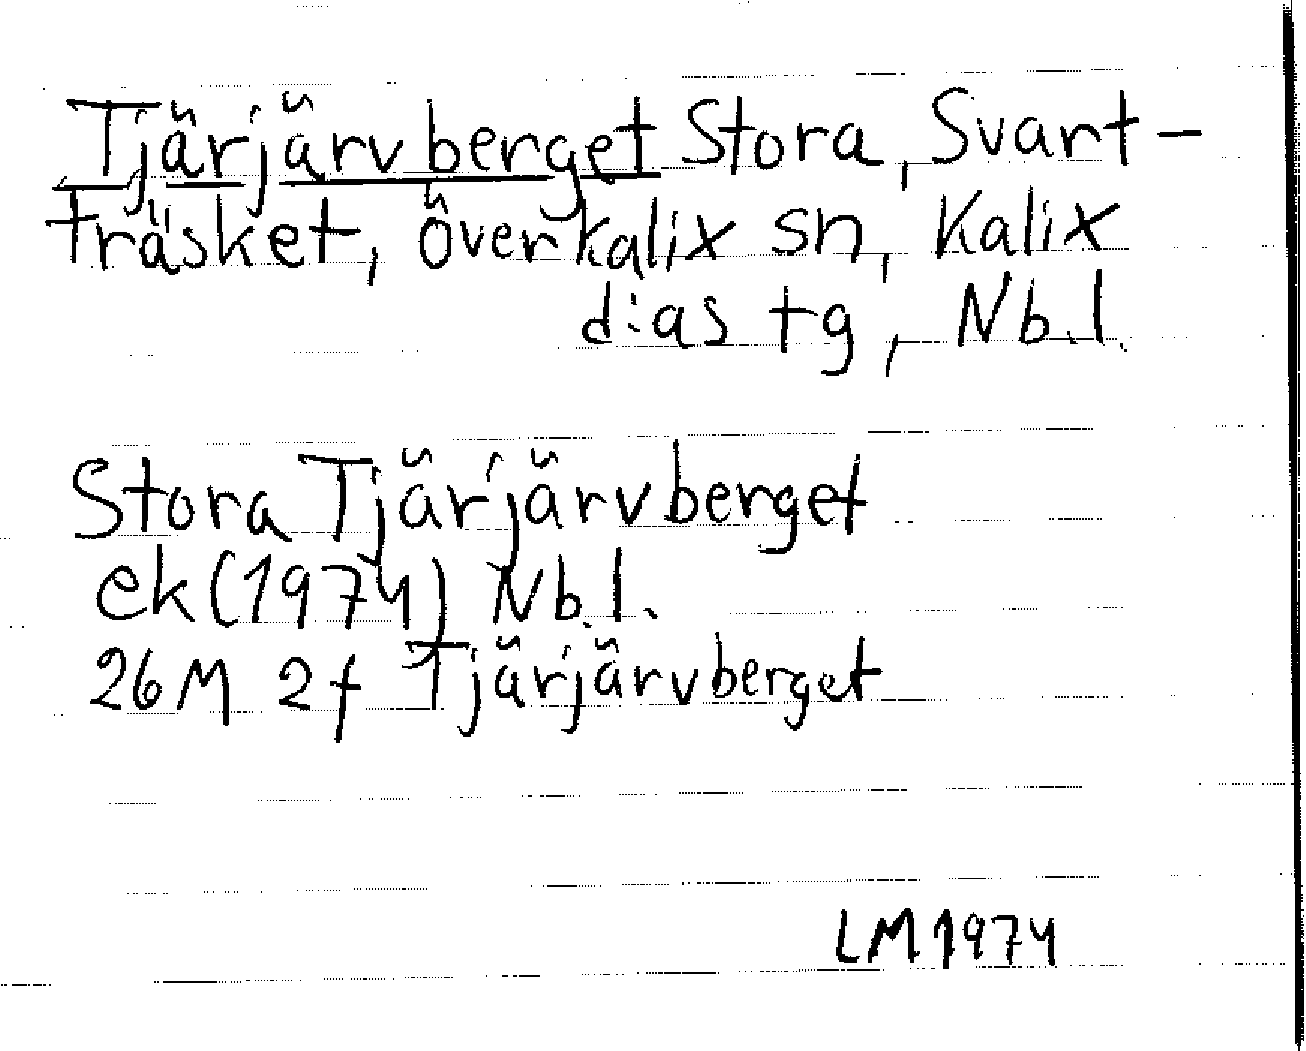 Tjärjärvberget Stora, Svart-
träsket, Överkalix sn, Kalix
d:as tg, Nb.l.
Stora Tjärjärvberget
ek (1974) Nb.l.
26M 2f Tjärjärvberget
LM 1974